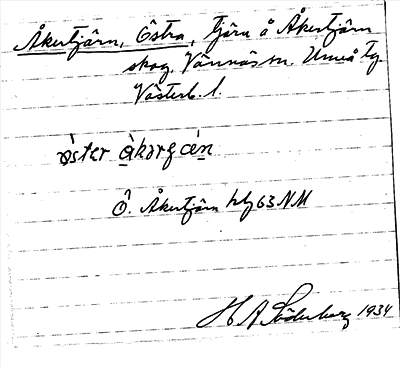 Åkertjärn, Östra, tjärn å Åkertjärn
skog, Vännäs sn. Umeå tg.
Västerb. l.
Ö. Åkertjärn hly 63 NM
H A Söderberg 1934